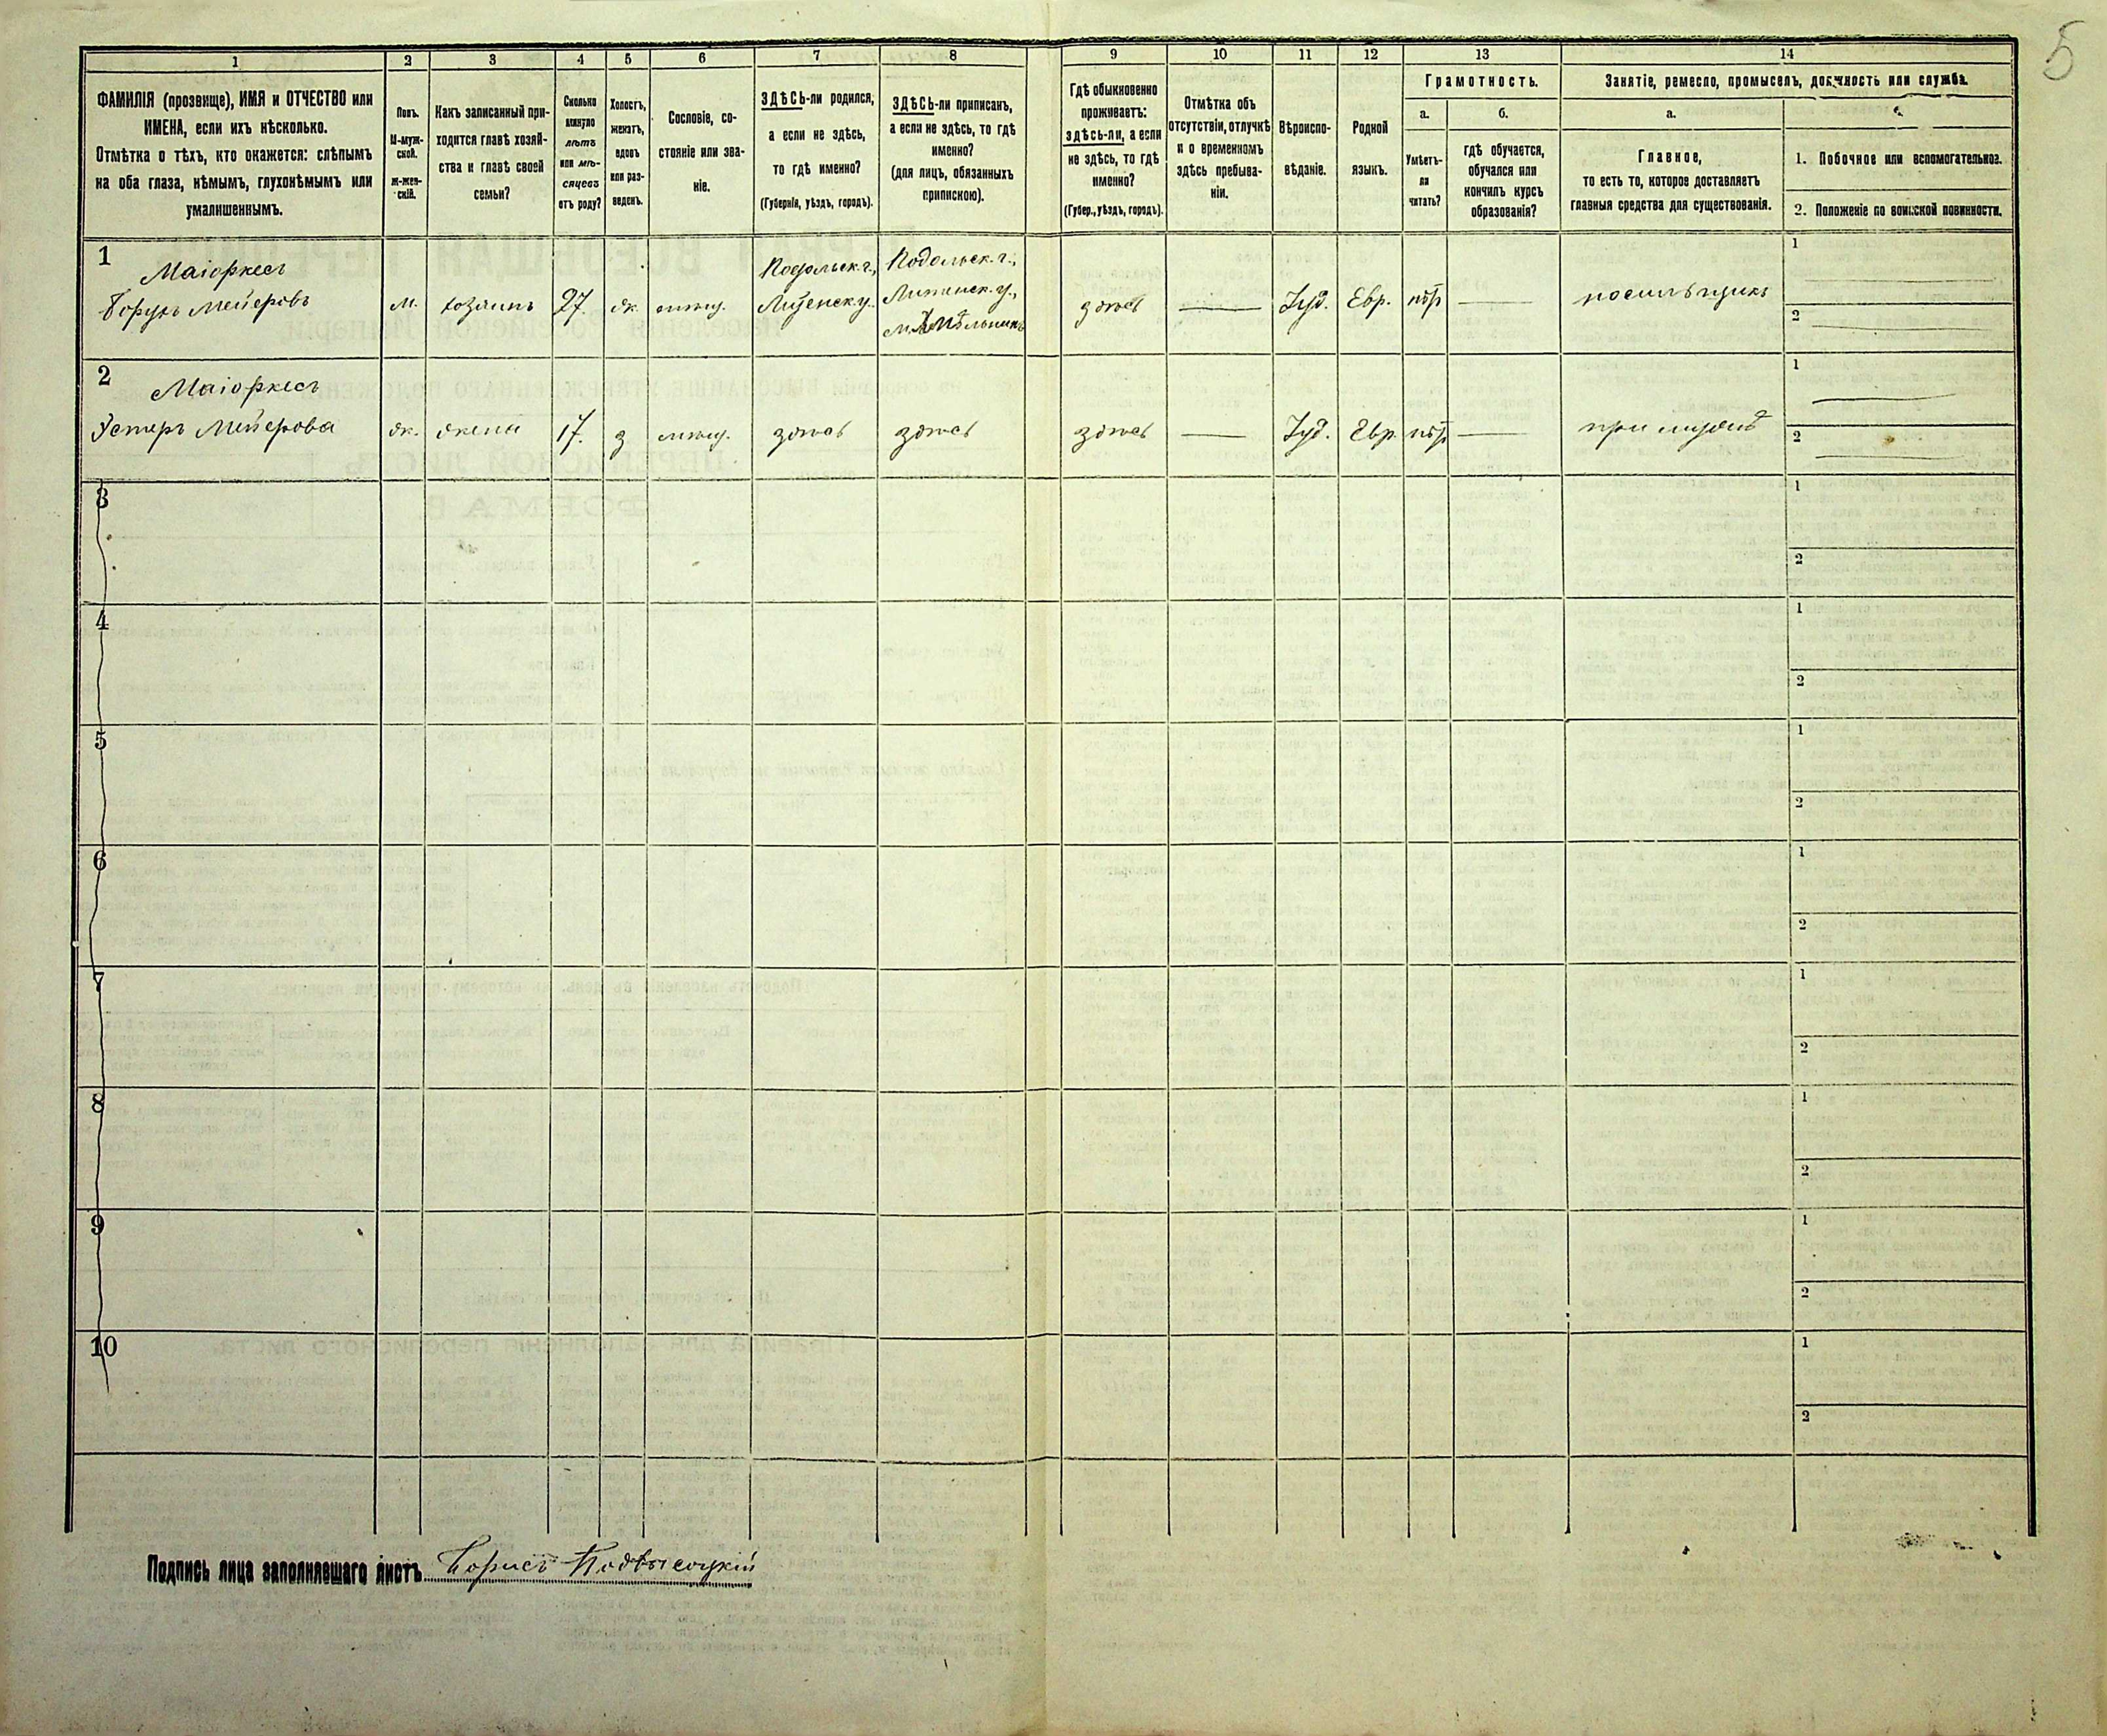 5
1 2 3 4 5 6 7 8 9 10 11 12 13 14
ФАМИЛІЯ (прозвище), ИМЯ и ОТЧЕСТВО или
ИМЕНА, если ихъ нѣсколько.
Отмѣтка о тѣхъ, кто окажется: слѣпымъ
на оба глаза, нѣмымъ, глухонѣмымъ или
умалишеннымъ.
Полъ.
М-муж-
ской.
ж-жен-
скій.
Какъ записанный при-
ходится главѣ хозяй-
ства и главѣ своей
семьи?
Сколько
минуло
лѣтъ
или мѣ-
сяцевъ
отъ роду?
Холостъ,
женатъ,
вдовъ
или раз-
веденъ.
Сословіе, со-
стояніе или зва-
ніе.
ЗДѢСЬ-ли родился,
а если не здѣсь,
то гдѣ именно?
(Губернія, уѣздъ, городъ).
ЗДѢСЬ-ли приписанъ,
а если не здѣсь, то гдѣ
именно?
(для лицъ, обязанныхъ
припискою).
Гдѣ обыкновенно
проживаетъ:
здѣсь-ли, а если
не здѣсь, то гдѣ
именно?
(Губер., уѣздъ, городъ).
Отмѣтка объ
отсутствіи, отлучкѣ
и о временномъ
здѣсь пребыва-
ніи.
Вѣроиспо-
вѣданіе.
Родной
языкъ.
Грамотность.
а.
Умѣетъ-
ли
читать?
б.
гдѣ обучается,
обучался или
кончилъ курсъ
образованія?
Занятіе, ремесло, промыселъ, должность или служба.
а.
Главное,
то есть то, которое доставляетъ
главныя средства для существованія.
1. Побочное или вспомогательное.
2. Положеніе по воинской повинности.
1 Маіоркесъ Подольск. г., Подольск. г.,
Борухъ Мейеровъ м. хозяинъ 27. ж. мѣщ. Литинск. у. Литинск. у., здѣсь — Іуд. Евр. нѣтъ — носильщикъ 1
м. Хмѣльникъ 2
2 Маіоркесъ 1
Эстеръ Мейерова ж. жена 17. з мѣщ. здѣсь здѣсь здѣсь — Іуд. Евр. нѣтъ — при мужѣ 2
3 1
2
4 1
2
5 1
2
6 1
2
7 1
2
8 1
2
9 1
2
10 1
2
Подпись лица заполнявшаго листъ Борисъ Подвысоцкій